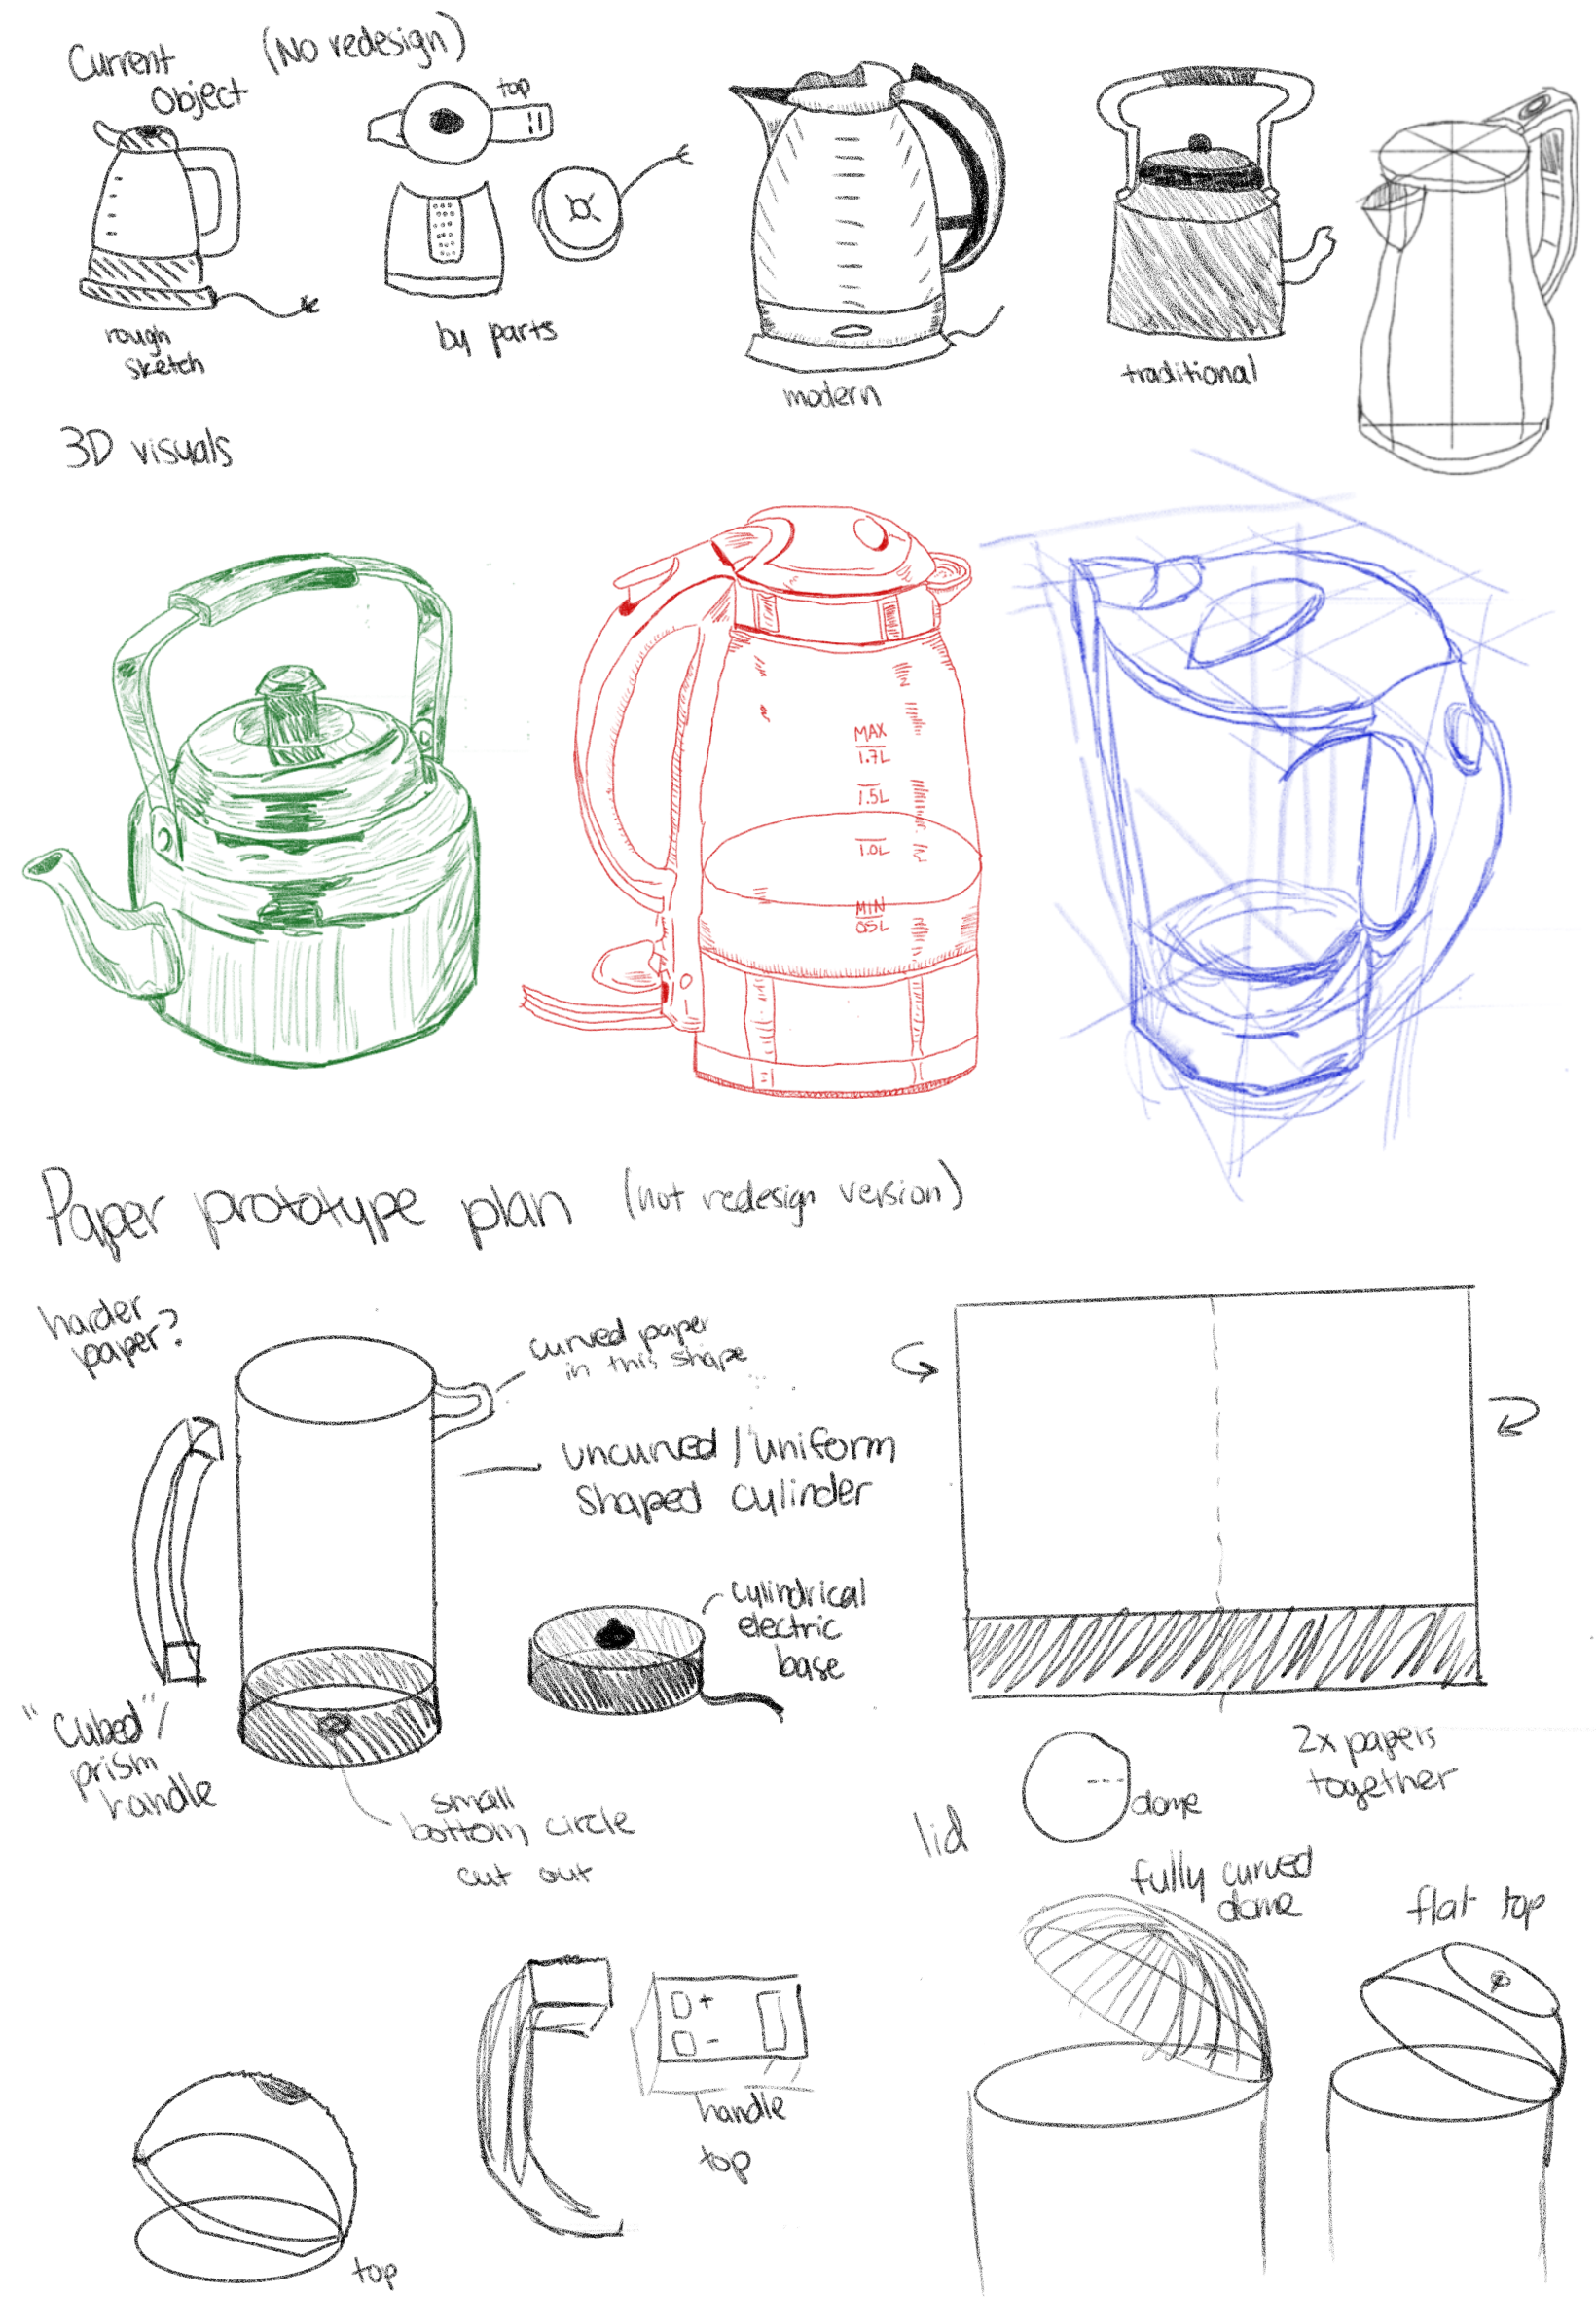 Current (No redesign)
Object
top
rough
sketch
by parts
modern
traditional
3D visuals
MAX
1.7L
1.5L
1.0L
MIN
0.5L
Paper prototype plan (not redesign version)
harder
paper?
curved paper
in this shape
uncurved / uniform
shaped cylinder
cylindrical
electric
base
"cubed"/
prism
handle
small
bottom circle
cut out
2x papers
together
dome
lid
fully curved
dome
flat top
+
-
handle
top
top